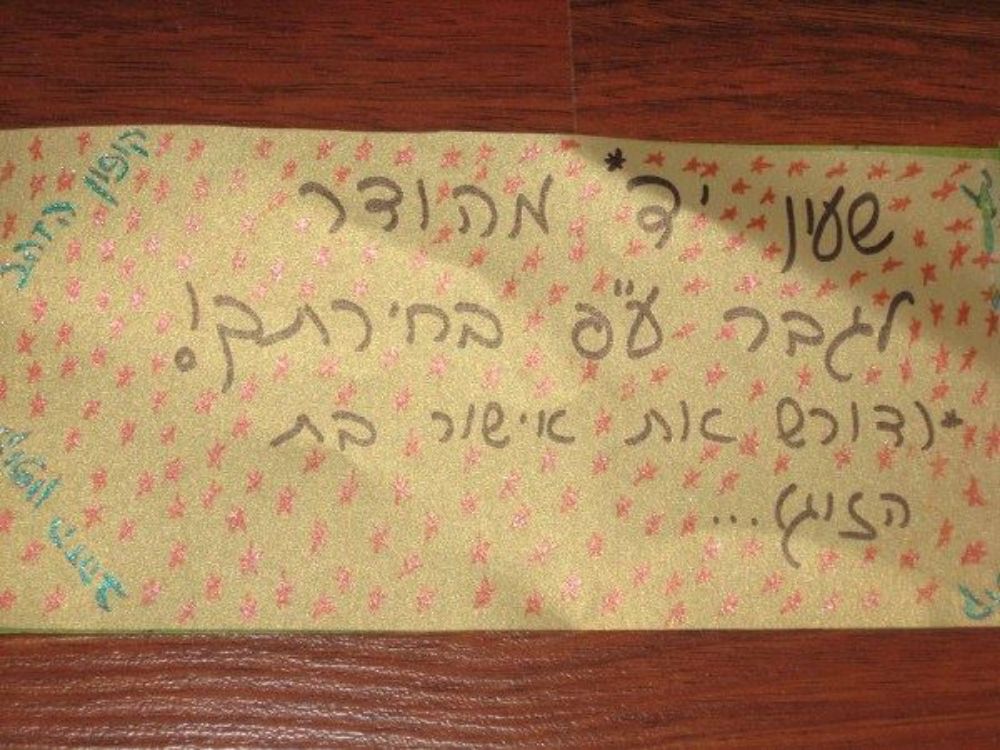 שעון יד* מהודר
לגבר ע"פ בחירתך!
*(דורש את אישור בת
הזוג)...
קופון הזהב